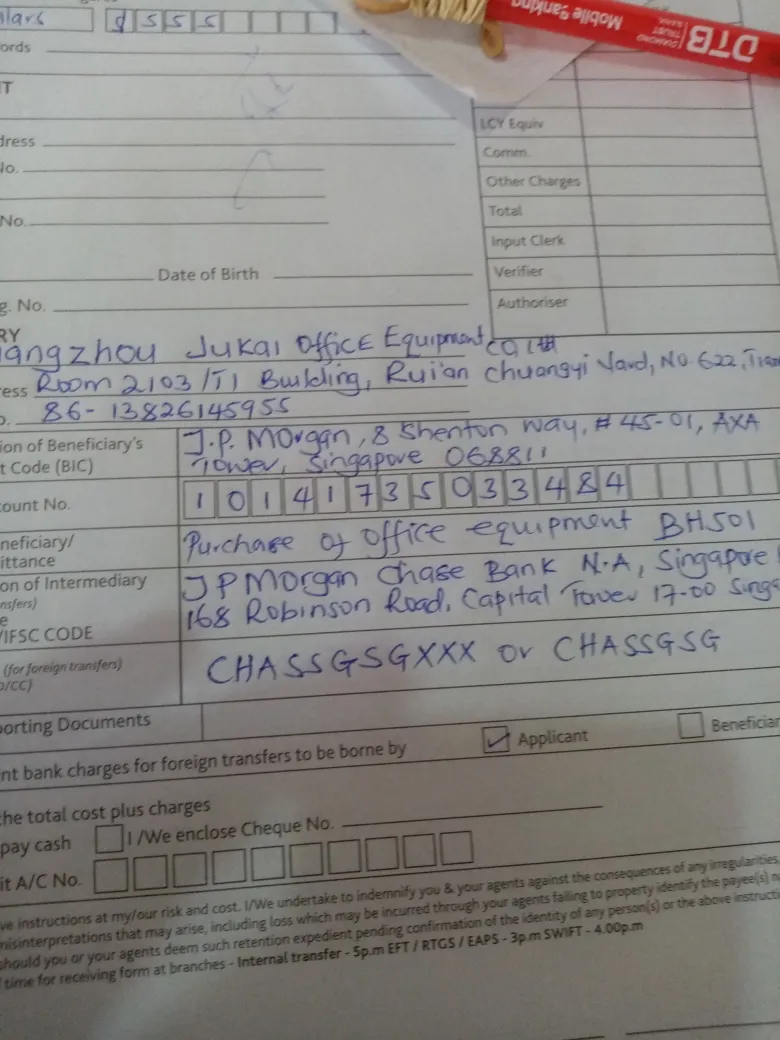 llars $ 5 5 5
Mobile Banking DIAMOND TRUST BANK DTB
ords
T
LCY Equiv
dress
Comm.
No.
Other Charges
Total
No.
Input Clerk
Date of Birth
Verifier
g. No.
Authoriser
RY
angzhou Jukai Office Equipment CO Ltd
ess Room 2103/T1 Building, Rui'an Chuangyi Yard, No 622, Tian
o. 86-13826145955
ion of Beneficiary's J.P. Morgan, 8 Shenton Way, #45-01, AXA
t Code (BIC) Tower, Singapore 068811
count No. 1 0 1 4 1 7 3 5 0 3 3 4 8 4
neficiary/ Purchase of office equipment BH501
ittance
on of Intermediary JP Morgan Chase Bank N.A, Singapore
nsfers)
e 168 Robinson Road, Capital Tower 17-00 Singa
/IFSC CODE
(for foreign transfers) CHASSGSGXXX or CHASSGSG
O/CC)
porting Documents
nt bank charges for foreign transfers to be borne by Applicant Beneficiar
he total cost plus charges
pay cash I/We enclose Cheque No.
it A/C No.
ve instructions at my/our risk and cost. I/We undertake to indemnify you & your agents against the consequences of any irregularities,
misinterpretations that may arise, including loss which may be incurred through your agents failing to property identify the payee(s) n
should you or your agents deem such retention expedient pending confirmation of the identity of any person(s) or the above instructi
time for receiving form at branches - Internal transfer - 5p.m EFT / RTGS / EAPS - 3p.m SWIFT - 4.00p.m